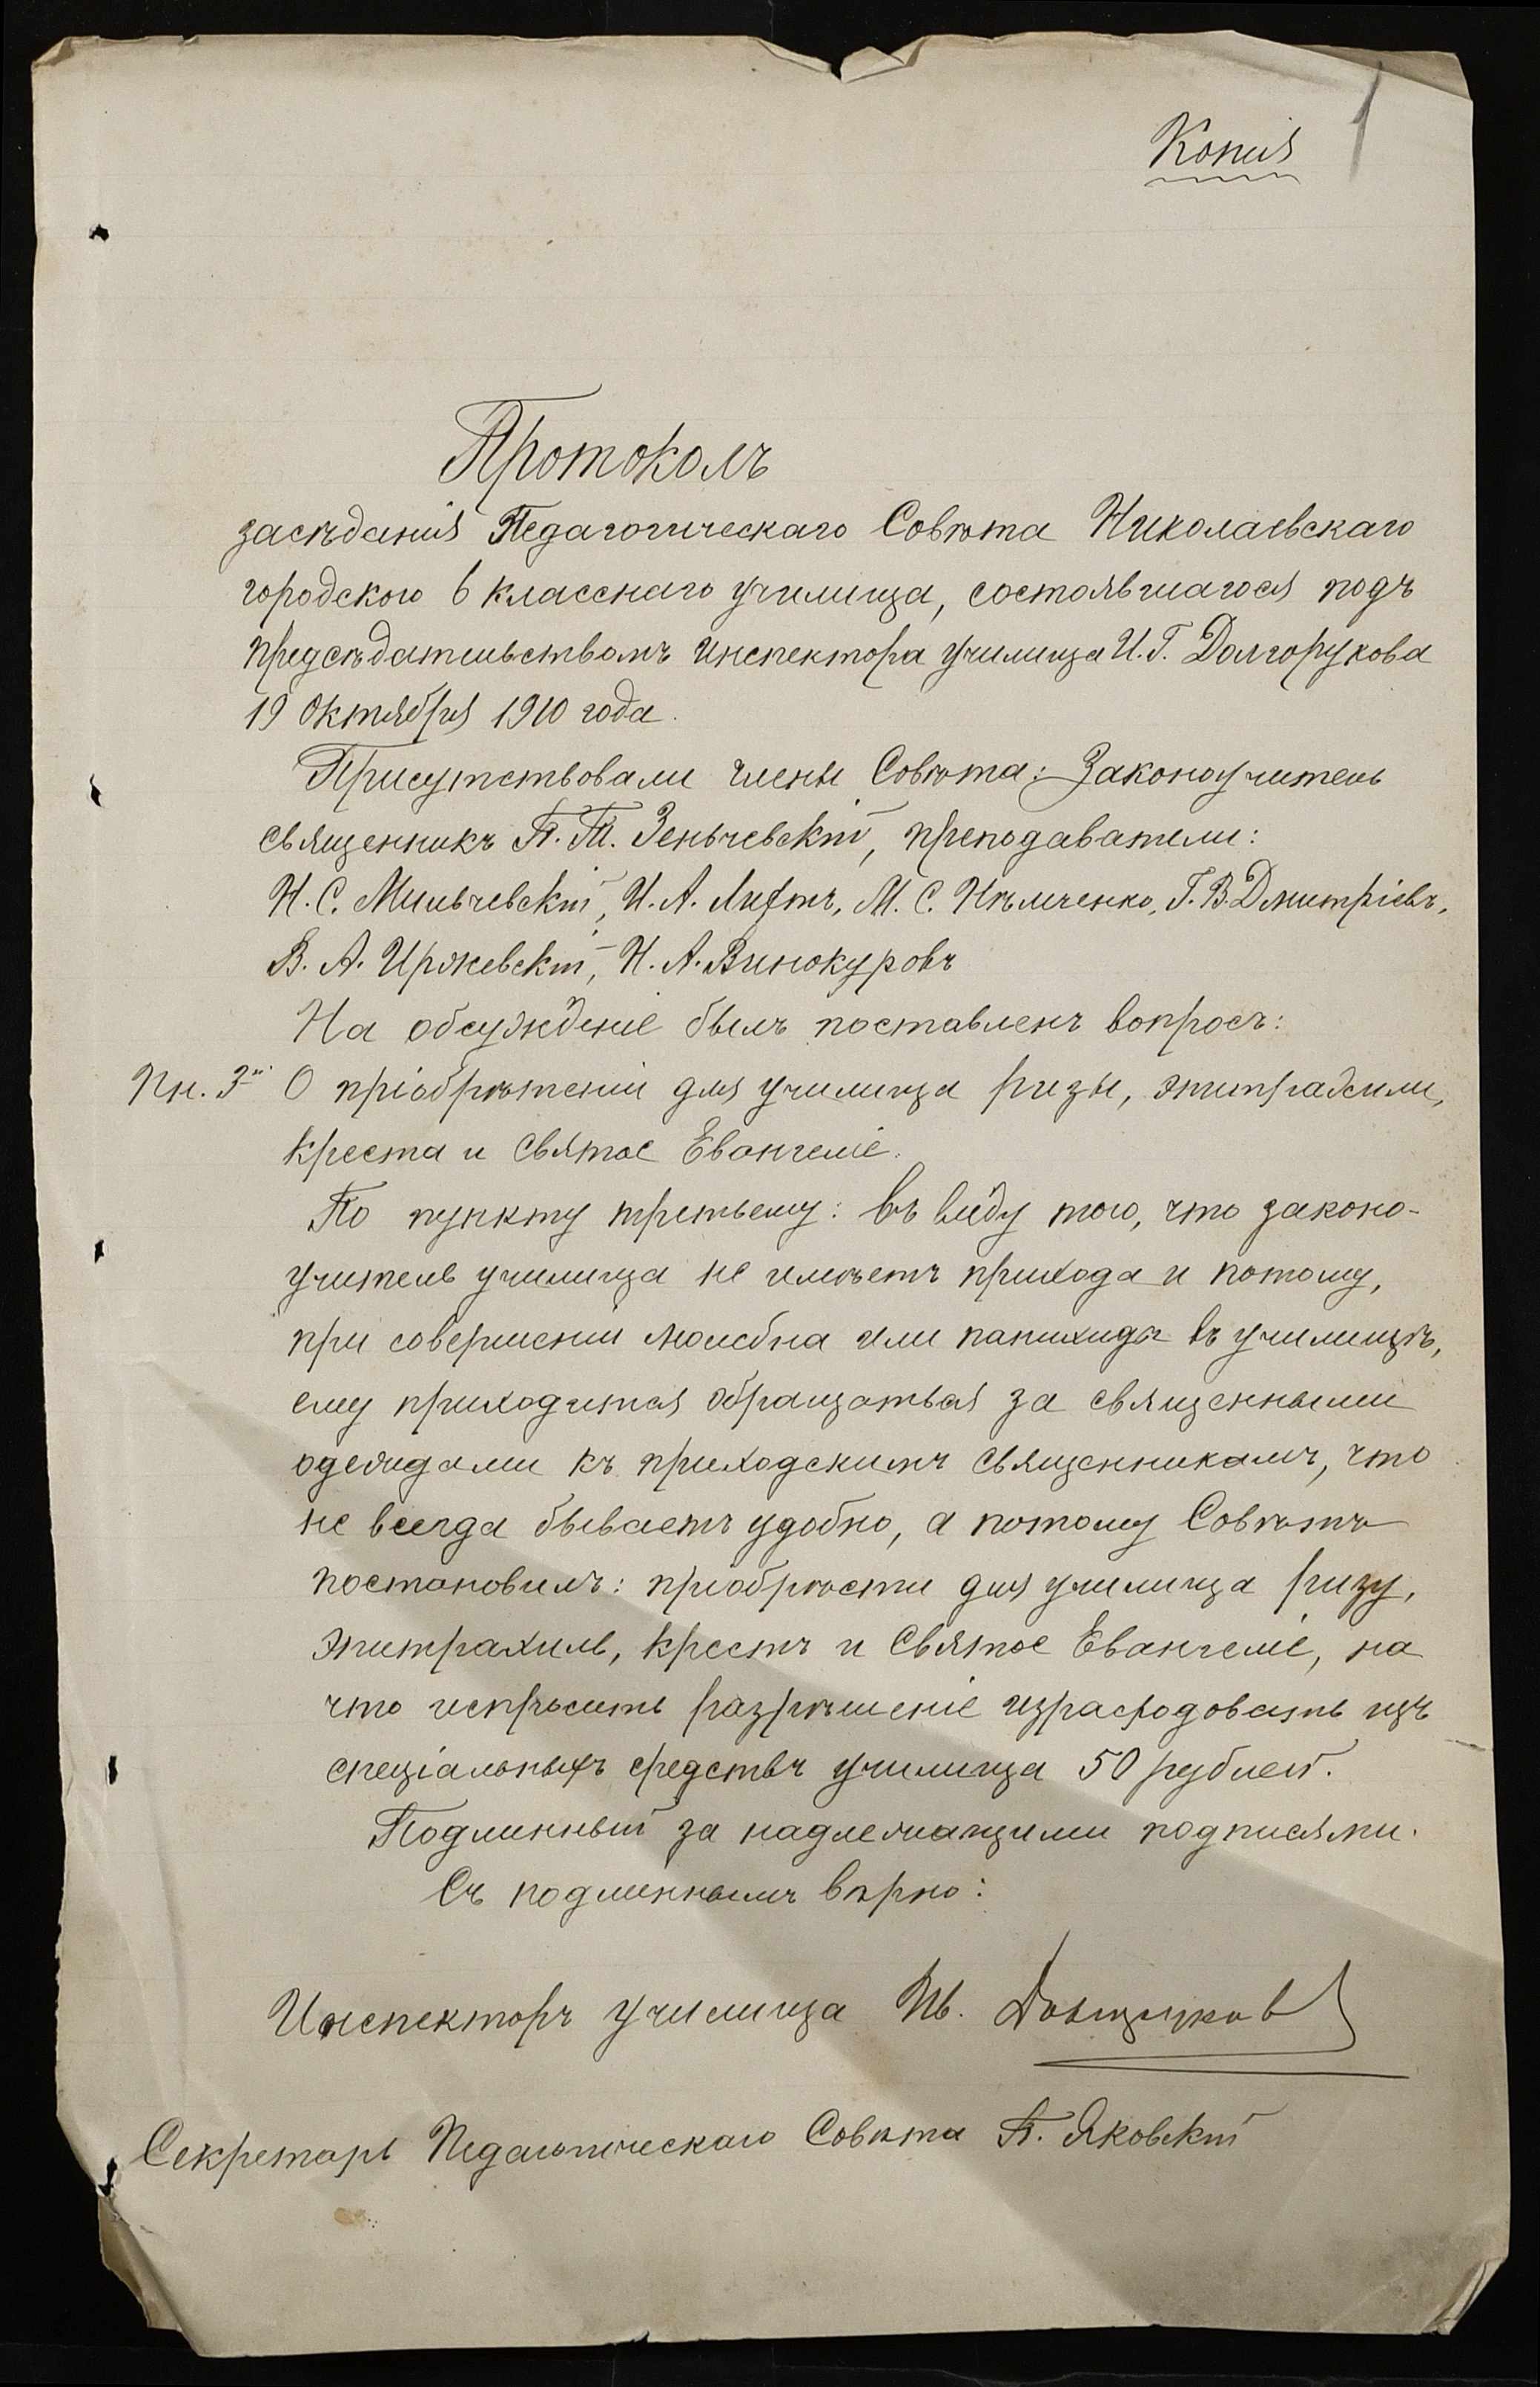 Копія
1
Протоколъ
засѣданія Педагогическаго Совѣта Николаевскаго
городского 6 класснаго училища, состоявшагося подъ
предсѣдательствомъ инспектора училища И. Г. Долгорукова
19 Октября 1910 года.
Присутствовали члены Совѣта: Законоучитель
священникъ П. Т. Зеньчевскій, преподаватели:
Н. С. Мильчевскій, И. А. Лифтъ, М. С. Ильченко, Г. В. Дмитріевъ,
В. А. Иржевскій, Н. А. Винокуровъ
На обсужденіе былъ поставленъ вопросъ:
Пн. 3й О пріобрѣтеніи для училища ризы, эпитрахили,
креста и Святое Евангеліе.
По пункту третьему: въ виду того, что законо-
учитель училища не имѣетъ прихода и потому,
при совершеніи молебна или панихиды въ училищѣ,
ему приходится обращаться за священными
одеждами къ приходскимъ священникамъ, что
не всегда бываетъ удобно, а потому Совѣтъ
постановилъ: пріобрѣсти для училища ризу,
эпитрахиль, крестъ и Святое Евангеліе, на
что испросить разрѣшеніе израсходовать изъ
спеціальныхъ средствъ училища 50 рублей.
Подлинный за надлежащими подписями.
Съ подлиннымъ вѣрно:
Инспекторъ училища Ив. Долгоруков
Секретарь Педагогическаго Совѣта П. Яковскій